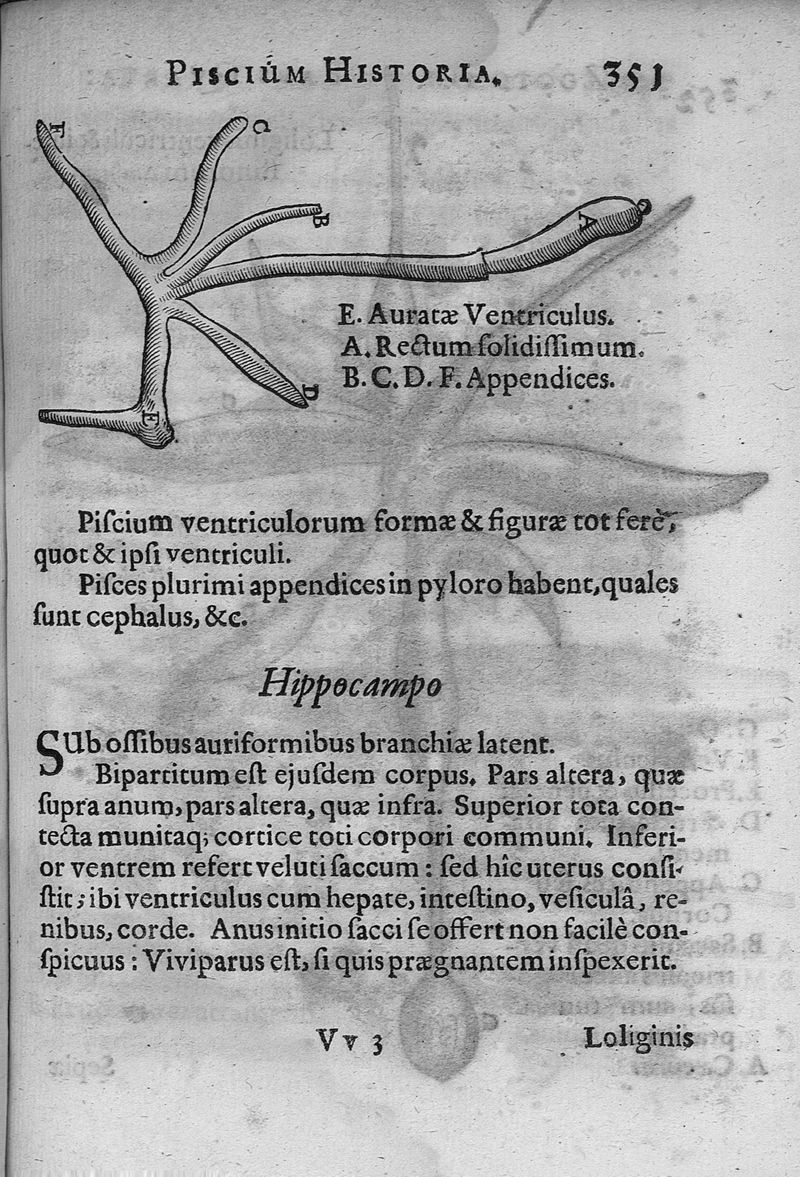 PISCIÚM HISTORIA. 351
F
C
B
A
E. Auratæ Ventriculus.
A. Rectum ſolidiſſimum.
B. C. D. F. Appendices.
D
E
Piſcium ventriculorum formæ & figuræ tot ferè,
quot & ipſi ventriculi.
Piſces plurimi appendices in pyloro habent, quales
ſunt cephalus, &c.
Hippocampo
SUb oſſibus auriformibus branchiæ latent.
Bipartitum eſt ejuſdem corpus. Pars altera, quæ
ſupra anum, pars altera, quæ infra. Superior tota con-
tecta munitaq; cortice toti corpori communi. Inferi-
or ventrem refert veluti ſaccum : ſed hîc uterus conſi-
ſtit ; ibi ventriculus cum hepate, inteſtino, veſiculâ, re-
nibus, corde. Anus initio ſacci ſe offert non facilè con-
ſpicuus : Viviparus eſt, ſi quis prægnantem inſpexerit.
Vv 3 Loliginis